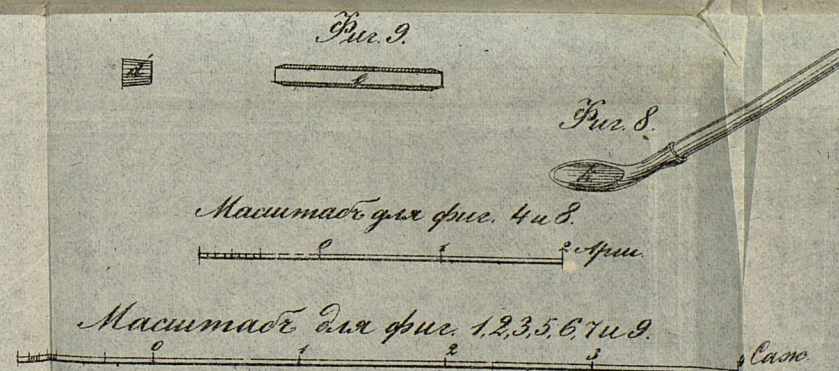 Фиг. 9.
Фиг. 8.
k
Масштабъ для фиг. 4 и 8.
0 1 2 Арш.
Масштабъ для фиг. 1,2,3,5,6,7 и 9.
0 1 2 3 4 Саж.